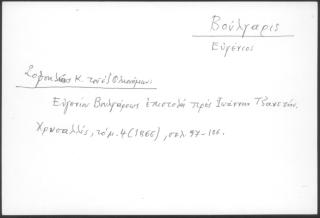 Βούλγαρις
Εὐγένιος
Κ. τοῦ ἐξ Οἰκονόμων:
Εὐγενίου Βουλγάρεως ἐπιστολὴ πρὸς Ἰωάννην Τζανέτην.
Χρυσαλλίς, τόμ. 4 (1866), σελ. 97-